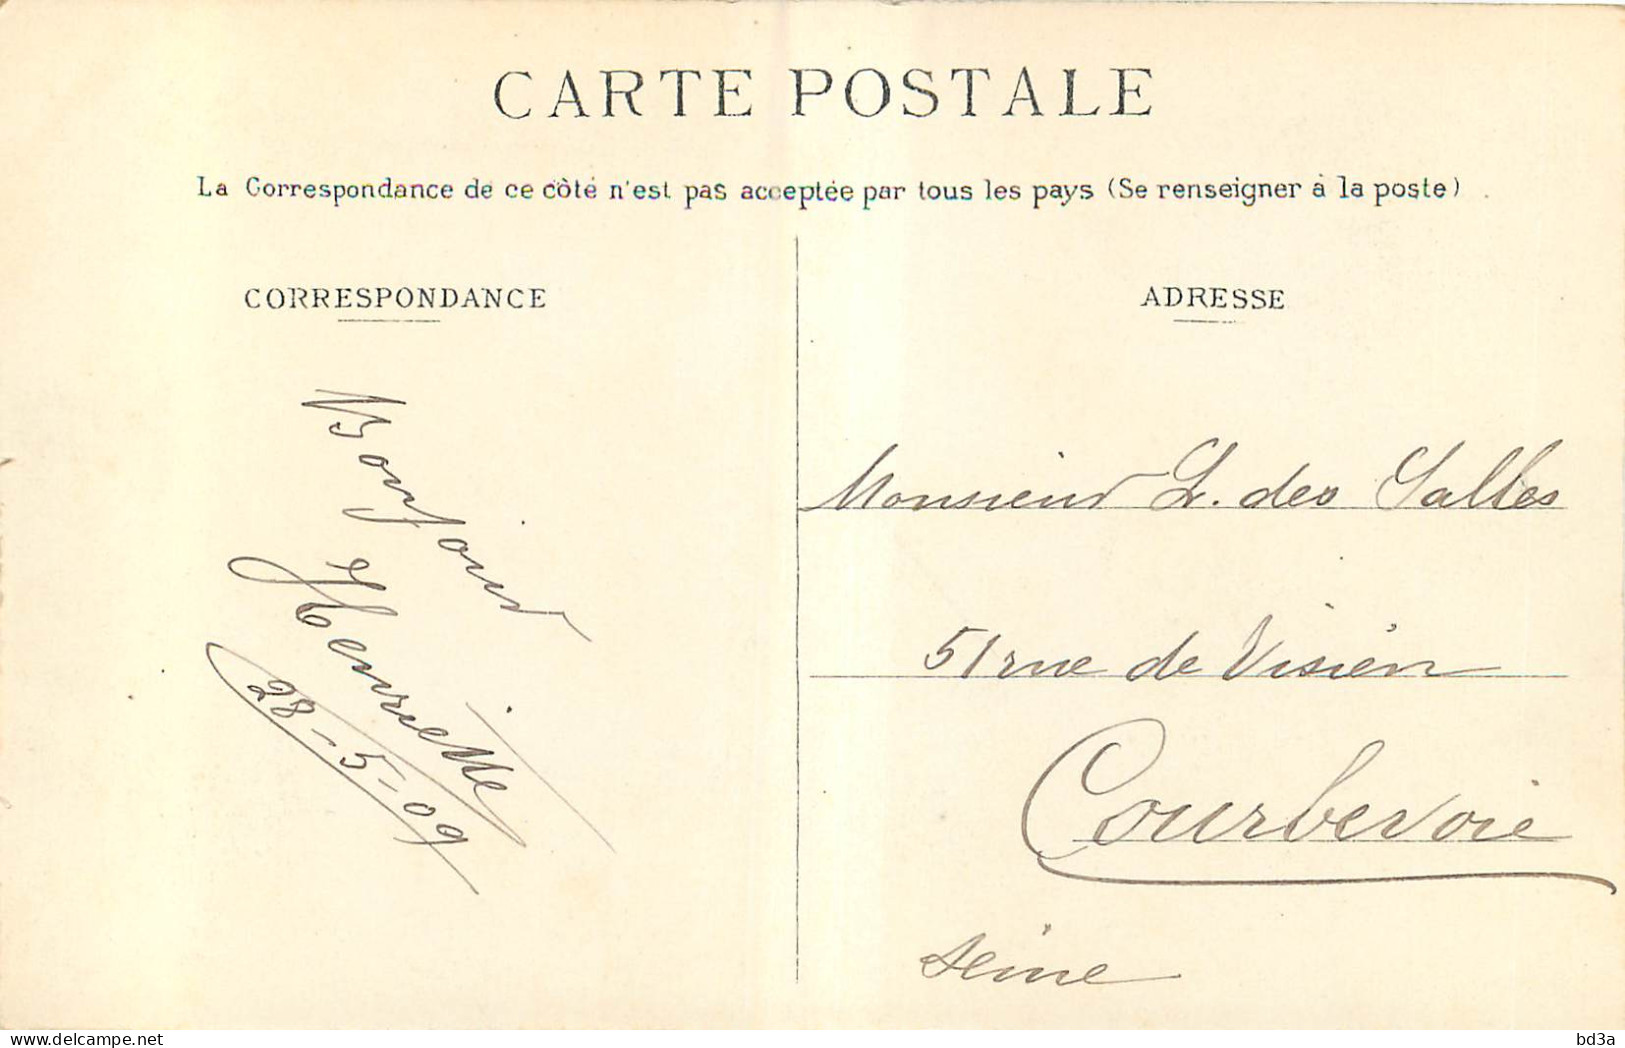 CARTE POSTALE
La Correspondance de ce côté n'est pas acceptée par tous les pays (Se renseigner à la poste)
CORRESPONDANCE
Bonjour
Henriette
28-5-09
ADRESSE
Monsieur L. des Salles
51 rue de Visien
Courbevoie
Seine
www.delcampe.net
bd3a